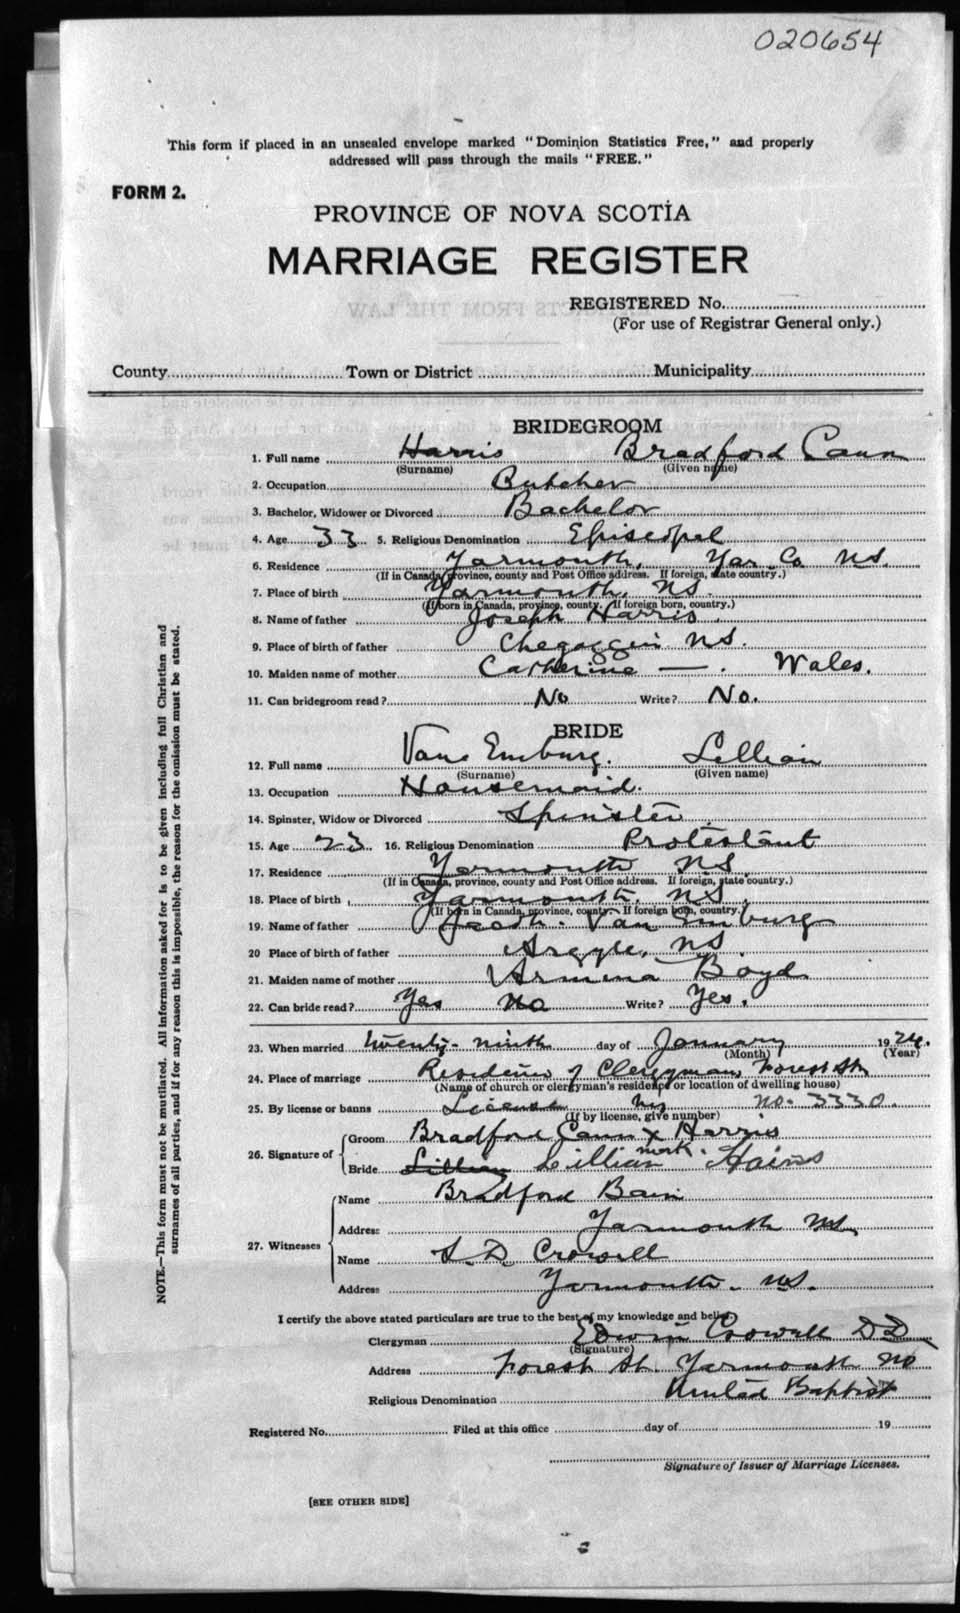 020654
This form if placed in an unsealed envelope marked "Dominion Statistics Free," and properly
addressed will pass through the mails "FREE."
FORM 2.
PROVINCE OF NOVA SCOTIA
MARRIAGE REGISTER
REGISTERED No.
(For use of Registrar General only.)
County Town or District Municipality
BRIDEGROOM
1. Full name Harris Bradford Cann
(Surname) (Given name)
2. Occupation Butcher
3. Bachelor, Widower or Divorced Bachelor
4. Age 33 5. Religious Denomination Episcopal
6. Residence Yarmouth, Yar. Co. N.S.
(If in Canada, province, county and Post Office address. If foreign, state country.)
7. Place of birth Yarmouth, N.S.
(If born in Canada, province, county. If foreign born, country.)
8. Name of father Joseph Harris.
9. Place of birth of father N.S.
10. Maiden name of mother Catherine — . Wales.
11. Can bridegroom read? No Write? No.
BRIDE
12. Full name Van Emburg. Lillian
(Surname) (Given name)
13. Occupation Housemaid.
14. Spinster, Widow or Divorced Spinster
15. Age 23 16. Religious Denomination Protestant
17. Residence Yarmouth N.S.
(If in Canada, province, county and Post Office address. If foreign, state country.)
18. Place of birth Yarmouth, N.S.
(If born in Canada, province, county. If foreign born, country.)
19. Name of father Van Emburg
20 Place of birth of father Argyle, N.S.
21. Maiden name of mother Armina Boyd
22. Can bride read? Yes No Write? Yes.
23. When married twenty-ninth day of January 1924.
(Month) (Year)
24. Place of marriage Residence of Clergyman, Forest St.
(Name of church or clergyman's residence or location of dwelling house)
25. By license or banns License No. 3330.
(If by license, give number)
26. Signature of Groom Bradford Cann x Harris
mark.
Bride Lillian Lillian Hains
27. Witnesses Name Bradford Bain
Address Yarmouth N.S.
Name S. D. Crowell
Address Yarmouth. N.S.
I certify the above stated particulars are true to the best of my knowledge and belief.
Clergyman Edwin Crowell D.D.
(Signature)
Address Forest St. Yarmouth NS
Religious Denomination United Baptist
Registered No. Filed at this office day of 19
Signature of Issuer of Marriage Licenses.
[SEE OTHER SIDE]
NOTE.—This form must not be mutilated. All information asked for is to be given including full Christian and
surnames of all parties, and if for any reason this is impossible, the reason for the omission must be stated.